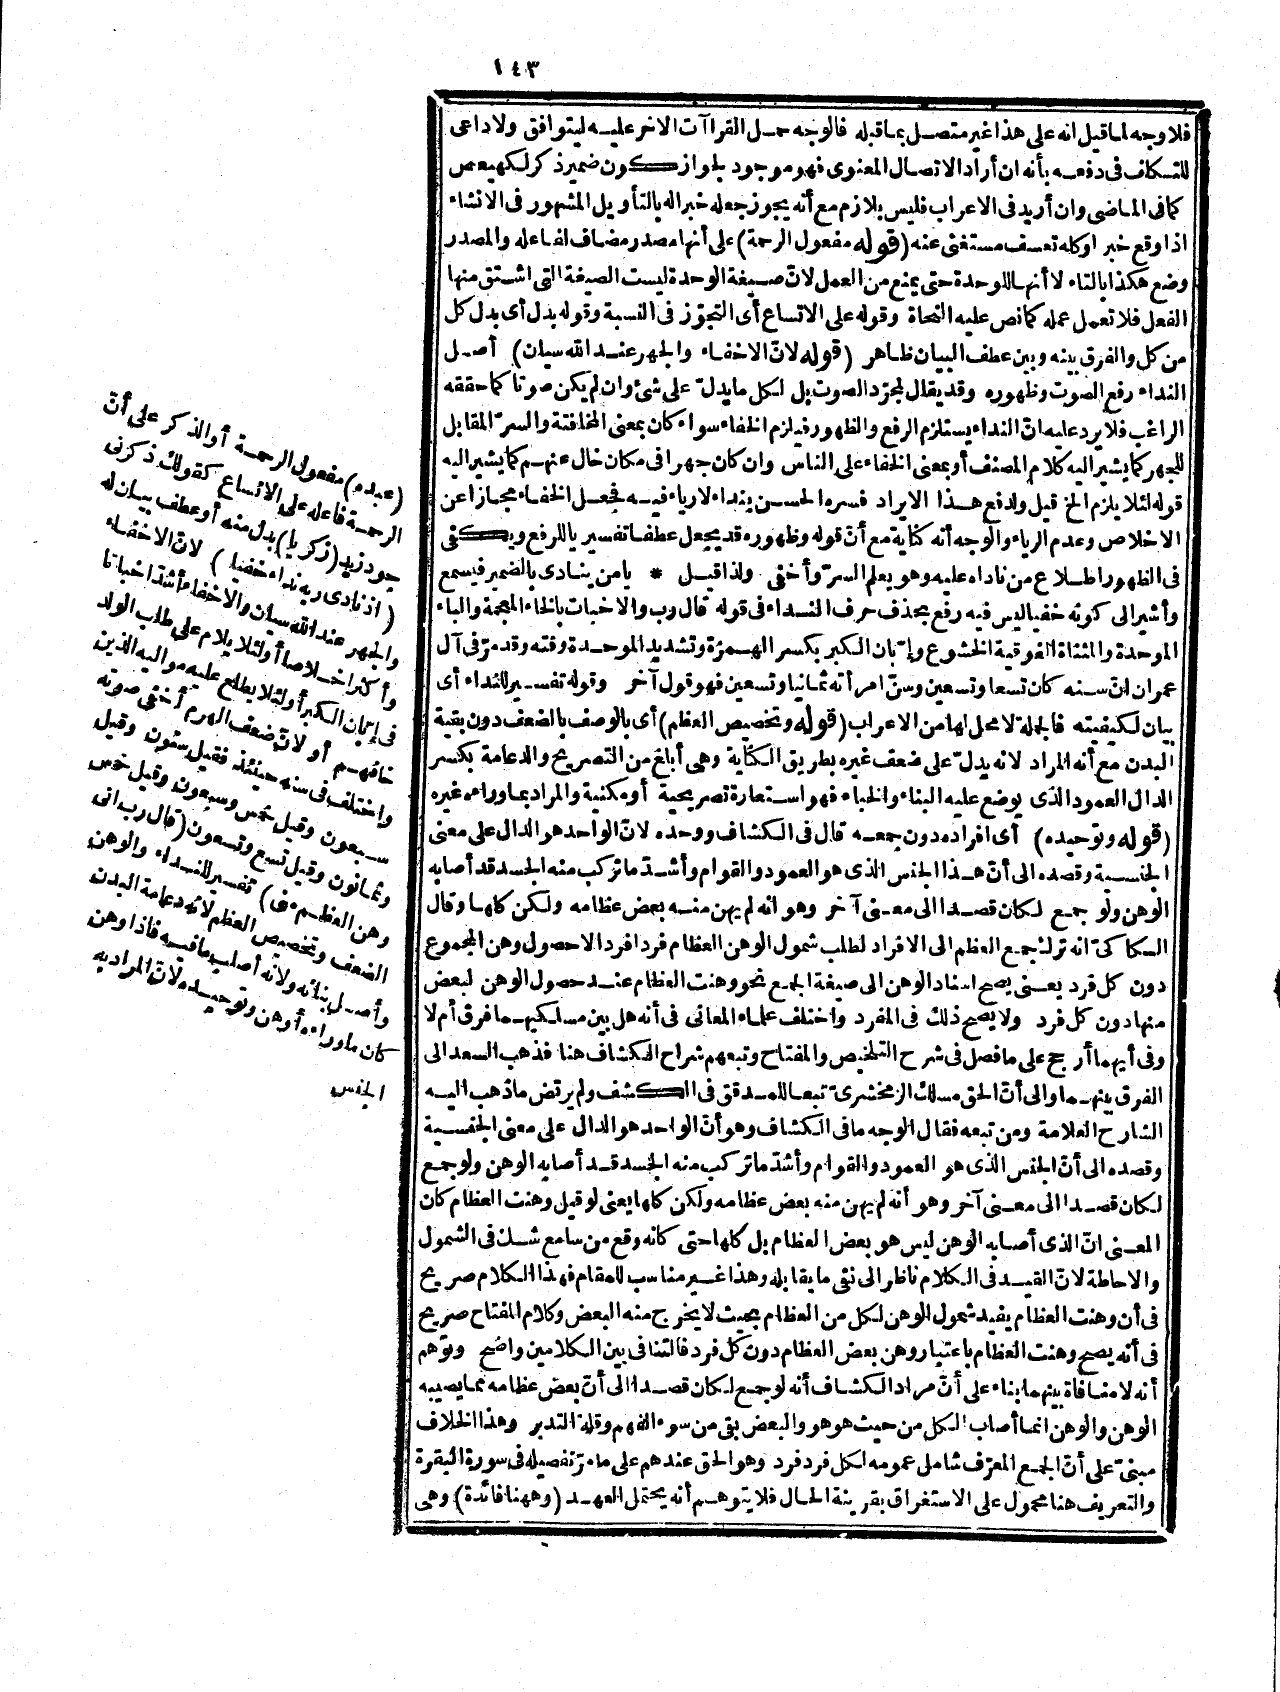 ١٤٣
فلا وجه لما قيل انه على هذا غير متصل بما قبله فالوجه حمل القراآت الاخر عليه ليتوافق ولا داعى
للتكلف فى دفعه بأنه ان أراد الاتصال المعنوى فهو موجود لجواز كون ضمير ذكر لكهيعص
كما فى الماضى وان أريد فى الاعراب فليس بلازم مع أنه يجوز جعله خبرا له بالتأويل المشهور فى الانشاء
اذا وقع خبرا وكله تعسف مستغنى عنه (قوله مفعول الرحمة) على أنها مصدر مضاف لفاعله والمصدر
وضع هكذا بالتاء لا أنها للوحدة حتى يمنع من العمل لانّ صيغة الوحدة ليست الصيغة التى اشتق منها
الفعل فلا تعمل عمله كما نص عليه النحاة وقوله على الاتساع أى التجوّز فى النسبة وقوله بدل أى بدل كل
من كل والفرق بينه وبين عطف البيان ظاهر (قوله لانّ الاخفاء والجهر عند الله سيان) أصل
النداء رفع الصوت وظهوره وقد يقال لمجرّد الصوت بل لكل ما يدلّ على شئ وان لم يكن صوتا كما حققه
الراغب فلا يرد عليه انّ النداء يستلزم الرفع والظهور فيلزم الخفاء سواء كان بمعنى المخافتة والسرّ المقابل
للجهر كما يشير اليه كلام المصنف أو بمعنى الخفاء على الناس وان كان جهرا فى مكان خال عنهم كما يشير اليه
قوله لئلا يلزم الخ قيل ولدفع هذا الايراد فسره الحسن بنداء لا رياء فيه فجعل الخفاء مجازا عن
الاخلاص وعدم الرياء والوجه أنه كناية مع أنّ قوله وظهوره قد يجعل عطفا تفسيريا للرفع ويكفى
فى الظهور اطلاع من ناداه عليه وهو يعلم السرّ وأخفى ولذا قيل * يا من ينادى بالضمير فيسمع
وأشير الى كونه خفيا ليس فيه رفع بحذف حرف النداء فى قوله قال رب والاخبات بالخاء المعجمة والباء
الموحدة والمثناة الفوقية الخشوع وإبّان الكبر بكسر الهمزة وتشديد الموحدة وقته وقد مرّ فى آل
عمران انّ سنه كان تسعا وتسعين وسنّ امرأته ثمانيا وتسعين فهو قول آخر وقوله تفسير للنداء أى
بيان لكيفيته فالجملة لا محل لها من الاعراب (قوله وتخصيص العظم) أى بالوصف بالضعف دون بقية
البدن مع أنه المراد لانه يدلّ على ضعف غيره بطريق الكناية وهى أبلغ من التصريح والدعامة بكسر
الدال العمود الذى يوضع عليه البناء والخباء فهو استعارة تصريحية أو مكنية والمراد بما وراءه غيره
(قوله وتوحيده) أى افراده دون جمعه قال فى الكشاف ووحده لانّ الواحد هو الدال على معنى
الجنسية وقصده الى أنّ هذا الجنس الذى هو العمود والقوام وأشدّ ما تركب منه الجسد قد أصابه
الوهن ولو جمع لكان قصدا الى معنى آخر وهو انه لم يهن منه بعض عظامه ولكن كلها وقال
السكاكىّ انه ترك جمع العظم الى الافراد لطلب شمول الوهن العظام فردا فردا لاحصول وهن المجموع
دون كل فرد يعنى يصح اسناد الوهن الى صيغة الجمع نحو وهنت العظام عند حصول الوهن لبعض
منها دون كل فرد ولا يصح ذلك فى المفرد واختلف علماء المعانى فى أنه هل بين مسلكيهما فرق أم لا
وفى أيهما أرجح على ما فصل فى شرح التلخيص والمفتاح وتبعهم شراح الكشاف هنا فذهب السعد الى
الفرق بينهما والى أنّ الحق مسلك الزمخشرىّ تبعا للمدقق فى الكشف ولم يرتض ما ذهب اليه
الشارح العلامة ومن تبعه فقال الوجه ما فى الكشاف وهو أنّ الواحد هو الدال على معنى الجنسية
وقصده الى أنّ الجنس الذى هو العمود والقوام وأشدّ ما تركب منه الجسد قد أصابه الوهن ولو جمع
لكان قصدا الى معنى آخر وهو أنه لم يهن منه بعض عظامه ولكن كلها يعنى لو قيل وهنت العظام كان
المعنى انّ الذى أصابه الوهن ليس هو بعض العظام بل كلها حتى كانه وقع من سامع شك فى الشمول
والاحاطة لانّ القيد فى الكلام ناظر الى نفى ما يقابله وهذا غير مناسب للمقام فهذا الكلام صريح
فى أن وهنت العظام يفيد شمول الوهن لكل من العظام بحيث لا يخرج منه البعض وكلام المفتاح صريح
فى أنه يصح وهنت العظام باعتبار وهن بعض العظام دون كل فرد فالتنافى بين الكلامين واضح وتوّهم
أنه لا منافاة بينهما بناء على أنّ مراد الكشاف أنه لو جمع لكان قصدا الى أنّ بعض عظامه مما يصيبه
الوهن والوهن انما أصاب الكل من حيث هو هو والبعض بقى من سوء الفهم وقلة التدبر وهذا الخلاف
مبنىّ على أنّ الجمع المعرّف شامل عمومه لكل فرد فرد وهو الحق عندهم على ما مرّ تفصيله فى سورة البقرة
والتعريف هنا محمول على الاستغراق بقرينة الحال فلا يتوهم أنه يحتمل العهد (وههنا فائدة) وهى
(عبده) مفعول الرحمة أو الذكر على أنّ
الرحمة فاعله على الاتساع كقولك ذكرنى
جود زيد (زكريا) بدل منه أو عطف بيان له
(اذ نادى ربه نداء خفيا) لانّ الاخفاء
والجهر عند الله سيان والاخفاء أشدّ اخباتا
وأكثر اخلاصا أو لئلا يلام على طلب الولد
فى إبّان الكبر أو لئلا يطلع عليه مواليه الذين
خافهم أو لانّ ضعف الهرم أخفى صوته
واختلف فى سنه حينئذ فقيل ستون وقيل
سبعون وقيل خمس وسبعون وقيل خمس
وثمانون وقيل تسع وتسعون (قال رب انى
وهن العظم منى) تفسير للنداء والوهن
الضعف وتخصيص العظم لانه دعامة البدن
وأصل بنائه ولانه أصلب ما فيه فاذا وهن
كان ما وراءه أوهن وتوحيده لانّ المراد به
الجنس